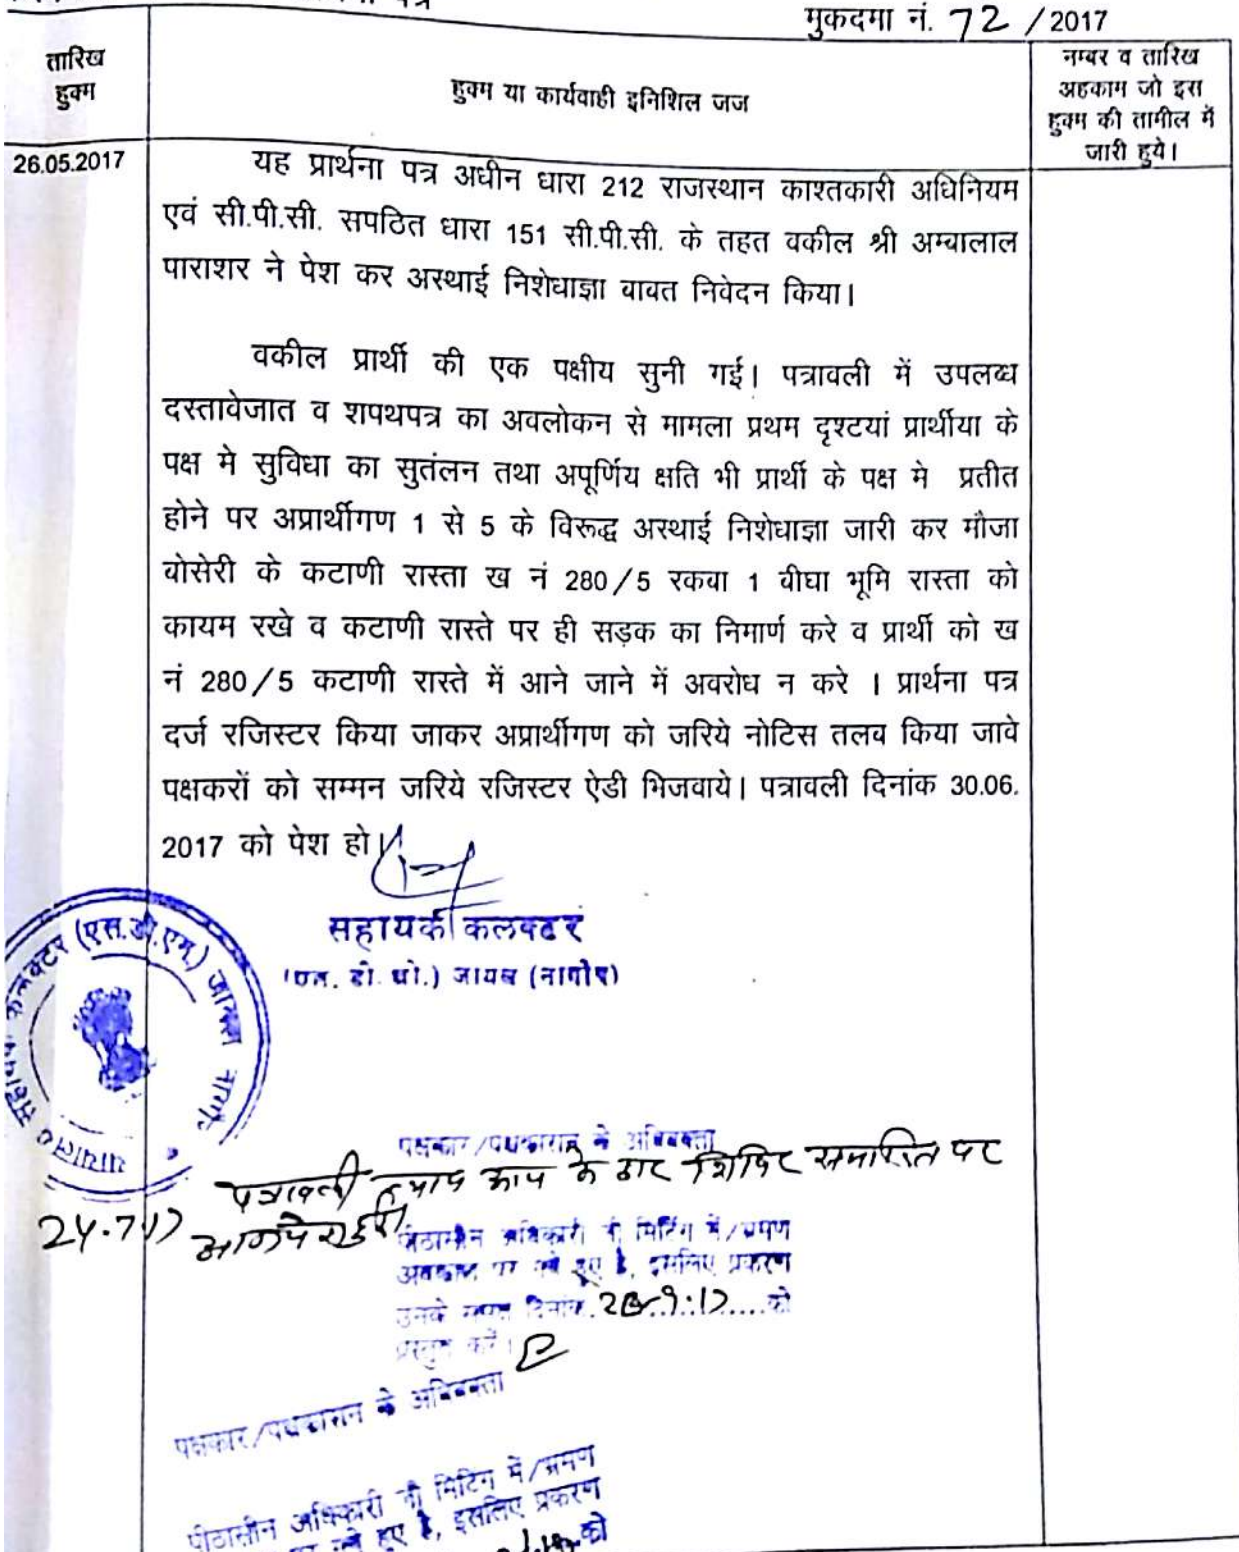 मुकदमा नं. 72 / 2017
तारिख
हुक्म
हुक्म या कार्यवाही इनिशिल जज
नम्बर व तारिख
अहकाम जो इस
हुक्म की तामील में
जारी हुये।
26.05.2017
यह प्रार्थना पत्र अधीन धारा 212 राजस्थान काश्तकारी अधिनियम
एवं सी.पी.सी. सपठित धारा 151 सी.पी.सी. के तहत वकील श्री अम्बालाल
पाराशर ने पेश कर अस्थाई निशेधाज्ञा बाबत निवेदन किया।
वकील प्रार्थी की एक पक्षीय सुनी गई। पत्रावली में उपलब्ध
दस्तावेजात व शपथपत्र का अवलोकन से मामला प्रथम दृश्टयां प्रार्थीया के
पक्ष मे सुविधा का सुतंलन तथा अपूर्णिय क्षति भी प्रार्थी के पक्ष मे प्रतीत
होने पर अप्रार्थीगण 1 से 5 के विरूद्ध अस्थाई निशेधाज्ञा जारी कर मौजा
बोसेरी के कटाणी रास्ता ख नं 280/5 रकबा 1 बीघा भूमि रास्ता को
कायम रखे व कटाणी रास्ते पर ही सड़क का निमार्ण करे व प्रार्थी को ख
नं 280/5 कटाणी रास्ते में आने जाने में अवरोध न करे । प्रार्थना पत्र
दर्ज रजिस्टर किया जाकर अप्रार्थीगण को जरिये नोटिस तलब किया जावे
पक्षकरों को सम्मन जरिये रजिस्टर ऐडी भिजवाये। पत्रावली दिनांक 30.06.
2017 को पेश हो।
सहायक कलक्टर
जायल (नागौर)
कलक्टर (एस.डी.एम.) जायल
पक्षकार/पक्षकारान के अभिवक्ता
पत्रावली न्याय आप के द्वार शिविर समाप्ति पर
24.7.17
पीठासीन अधिकारी जी मिटिंग में/भ्रमण
अवकाश पर गये हुए है, इसलिए प्रकरण
उनके समक्ष दिनांक को
प्रस्तुत करें।
पक्षकार/पक्षकारान के अभिवक्ता
पीठासीन अधिकारी जी मिटिंग में/भ्रमण
पर गये हुए है, इसलिए प्रकरण
को